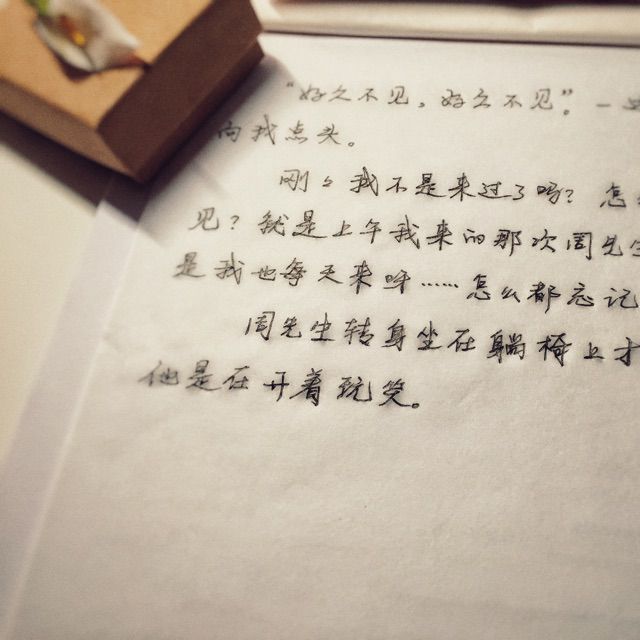 “好久不见，好久不见”。一
向我点头。
刚々我不是来过了吗？怎
见？就是上午我来的那次周先生
是我也每天来呀……怎么都忘记
周先生转身坐在躺椅上才
他是在开着玩笑。